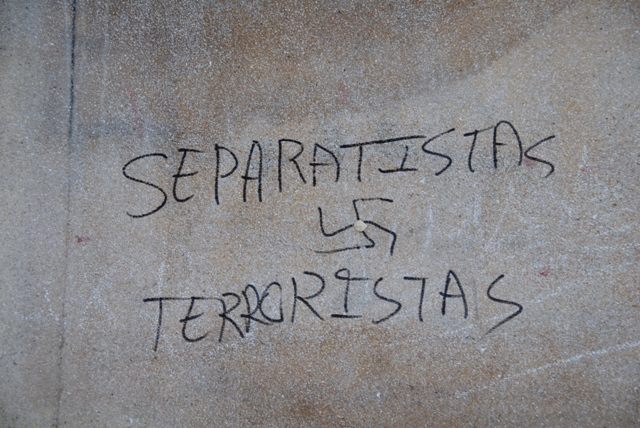 SEPARATISTAS
TERRORISTAS